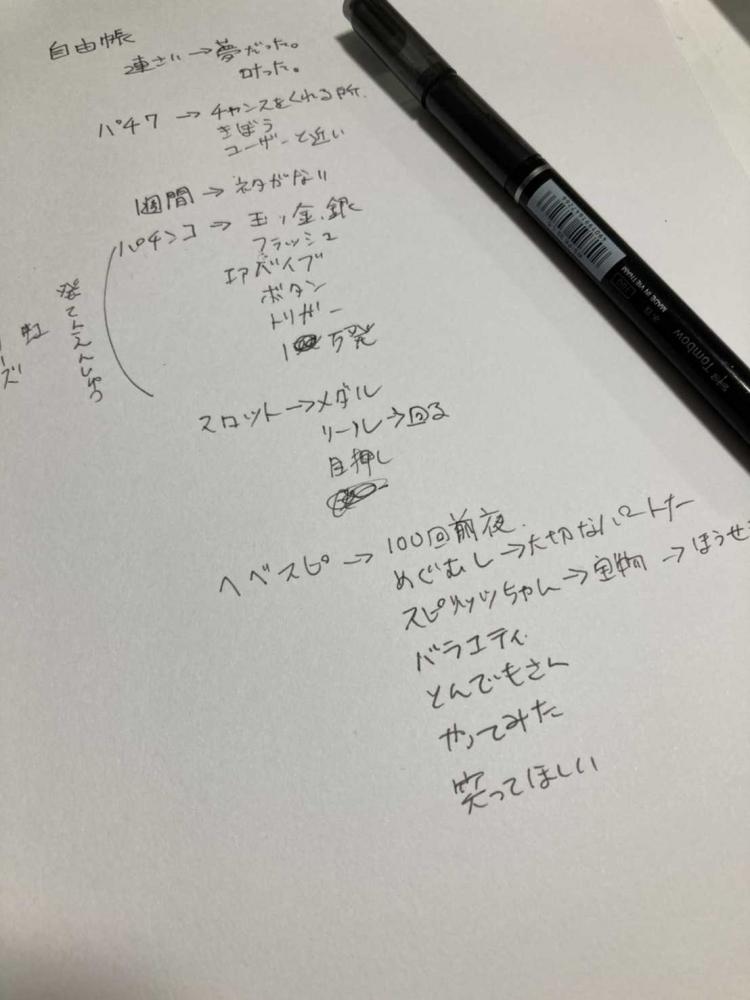 自由帳
連さい→夢だった。
叶った。
パチ7→チャンスをくれる所.
きぼう
ユーザーと近い
1週間→ネタがない
パチンコ→玉、金、銀
フラッシュ
エアバイブ
ボタン
トリガー
1 万発
発てんえんしゅつ
虹
ーズ
スロット→メダル
リール→回る
目押し
ヘベスピ→100回前夜.
めぐむし→大切なパートナー
スピリッツちゃん→宝物→ほうせき
バラエティ
とんでもさん
やってみた
笑ってほしい
Tombow
MADE IN VIETNAM